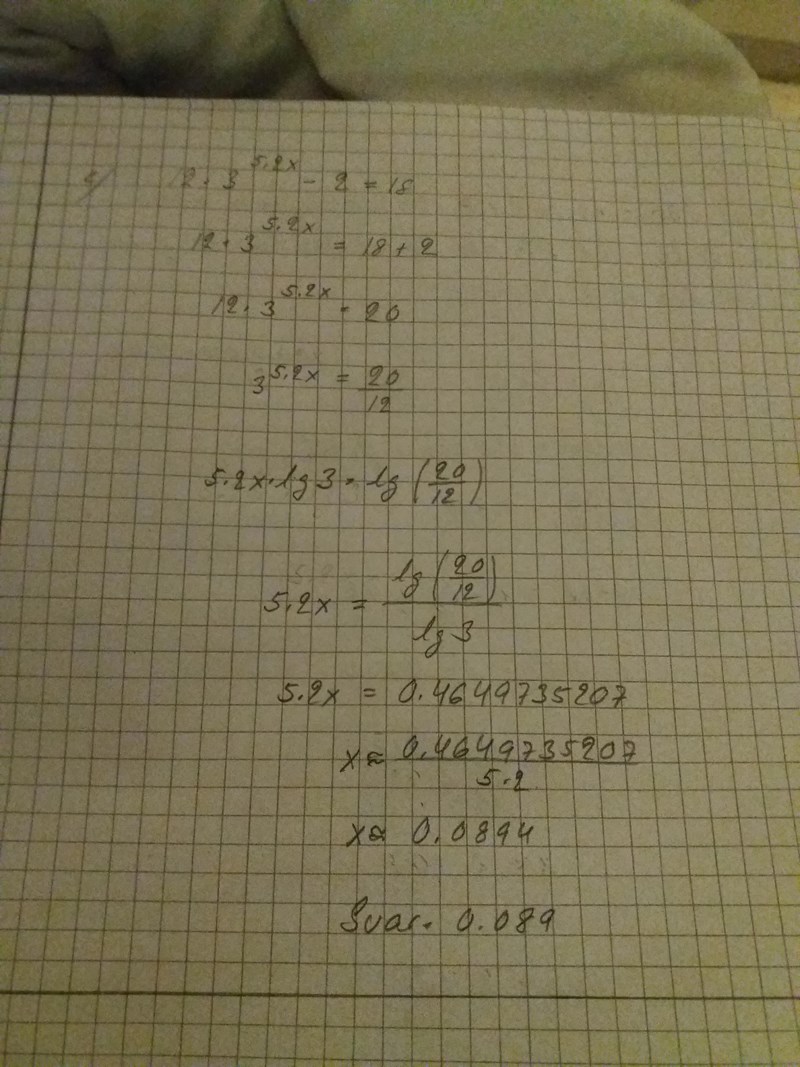 5/ 12 · 3^5.2x - 2 = 18
12 · 3^5.2x = 18 + 2
12 · 3^5.2x = 20
3^5.2x = 20/12
5.2x · lg 3 = lg (20/12)
5.2x = lg (20/12) / lg 3
5.2x = 0.4649735207
x ≈ 0.4649735207 / 5.2
x ≈ 0.0894
Svar. 0.089